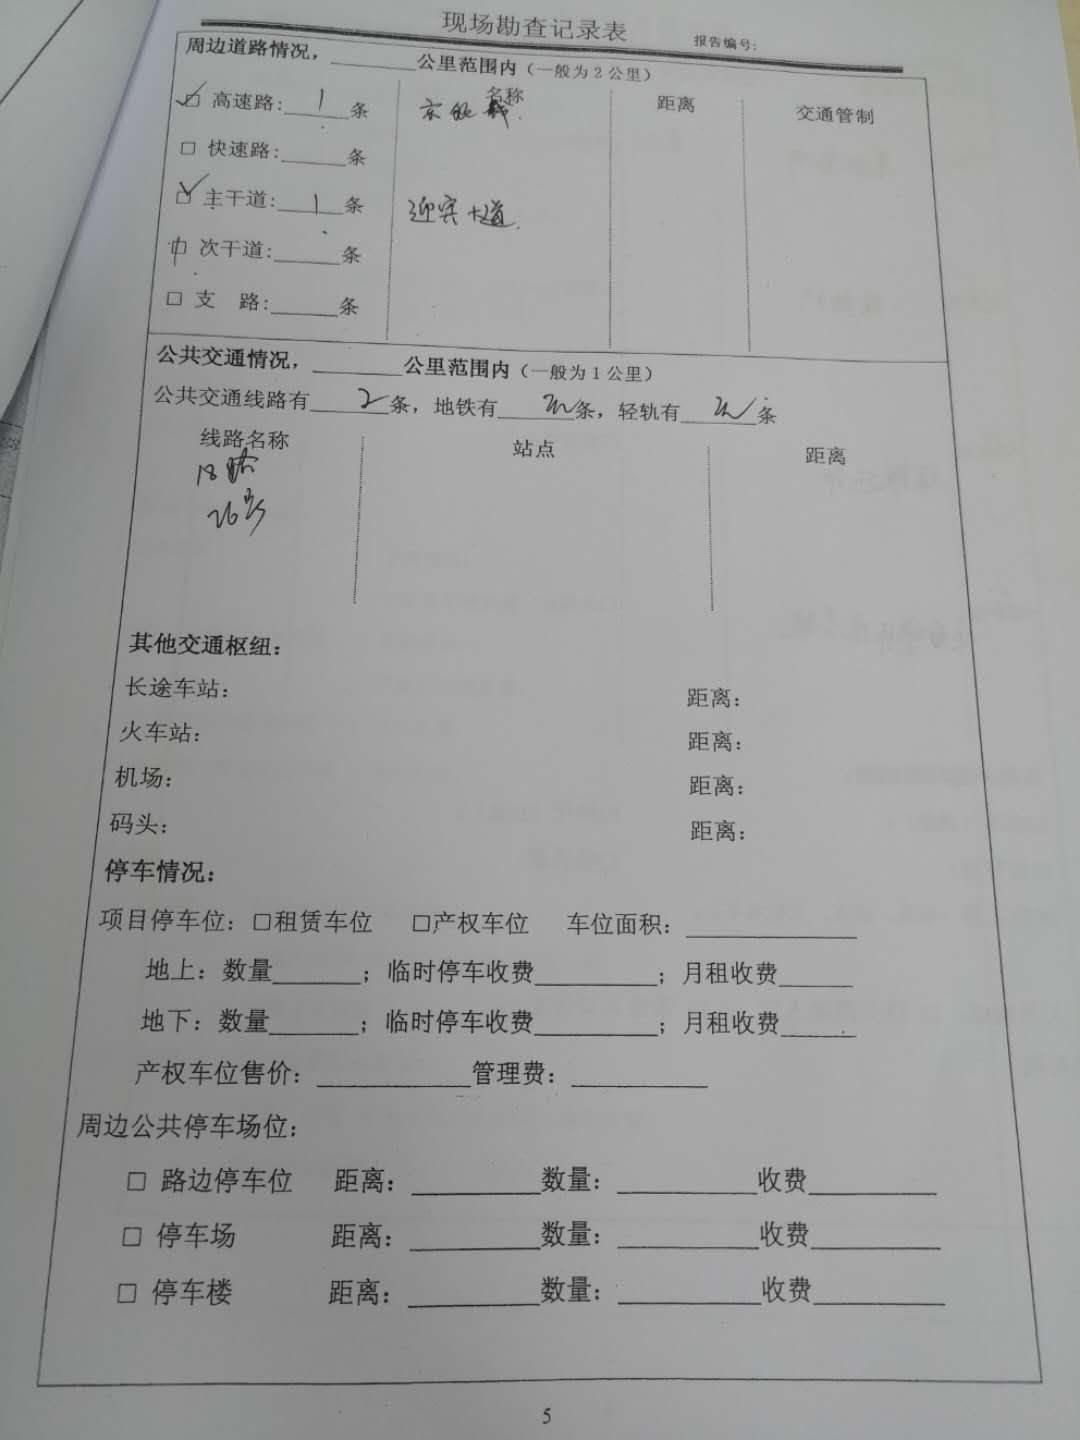 现场勘查记录表
报告编号:
周边道路情况，______公里范围内（一般为2公里）
名称 距离 交通管制
☑ 高速路: 1 条
□ 快速路:______条
☑ 主干道: 1 条 迎宾大道
□ 次干道:______条
□ 支 路:______条
公共交通情况，______公里范围内（一般为1公里）
公共交通线路有 2 条，地铁有 条，轻轨有 条
线路名称 站点 距离
18路
26路
其他交通枢纽：
长途车站： 距离：
火车站： 距离：
机场： 距离：
码头： 距离：
停车情况：
项目停车位：□租赁车位 □产权车位 车位面积：______
地上：数量______；临时停车收费______；月租收费______
地下：数量______；临时停车收费______；月租收费______
产权车位售价：______管理费：______
周边公共停车场位：
□ 路边停车位 距离：______数量：______收费______
□ 停车场 距离：______数量：______收费______
□ 停车楼 距离：______数量：______收费______
5